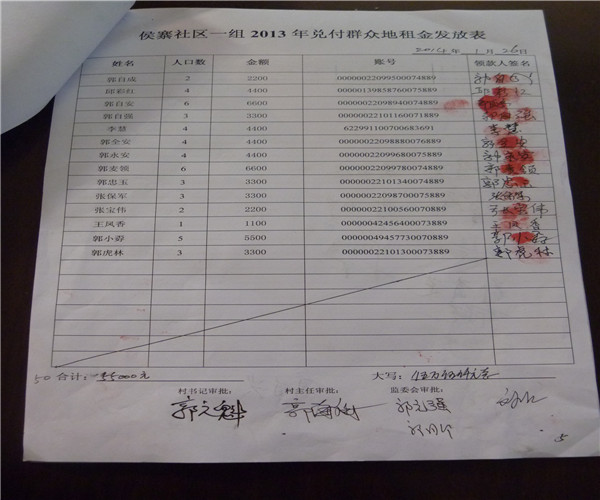 侯寨社区一组 2013 年兑付群众地租金发放表
2014年 1月 26日
姓名 人口数 金额 账号 领款人签名
郭自成 2 2200 00000022099500074889
邱彩红 4 4400 00000139858760075889
郭自安 6 6600 00000022098940074889
郭自强 3 3300 00000022101160071889
李慧 4 4400 622991100700683691 李慧
郭全安 4 4400 00000022098880076889
郭永安 4 4400 00000022099680075889
郭麦领 6 6600 00000022099780074889 郭麦领
郭忠玉 3 3300 00000022101340074889 郭忠玉
张保军 3 3300 00000022098700075889
张宝伟 2 2200 00000022100560070889 张宝伟
王凤香 1 1100 00000042456400073889 王凤香
郭小孬 5 5500 00000049457730070889 郭小孬
郭虎林 3 3300 00000022101300073889 郭虎林
50 合计: 55000元 大写:
村书记审批: 村主任审批: 监委会审批:
郭元魁 郭元强
5